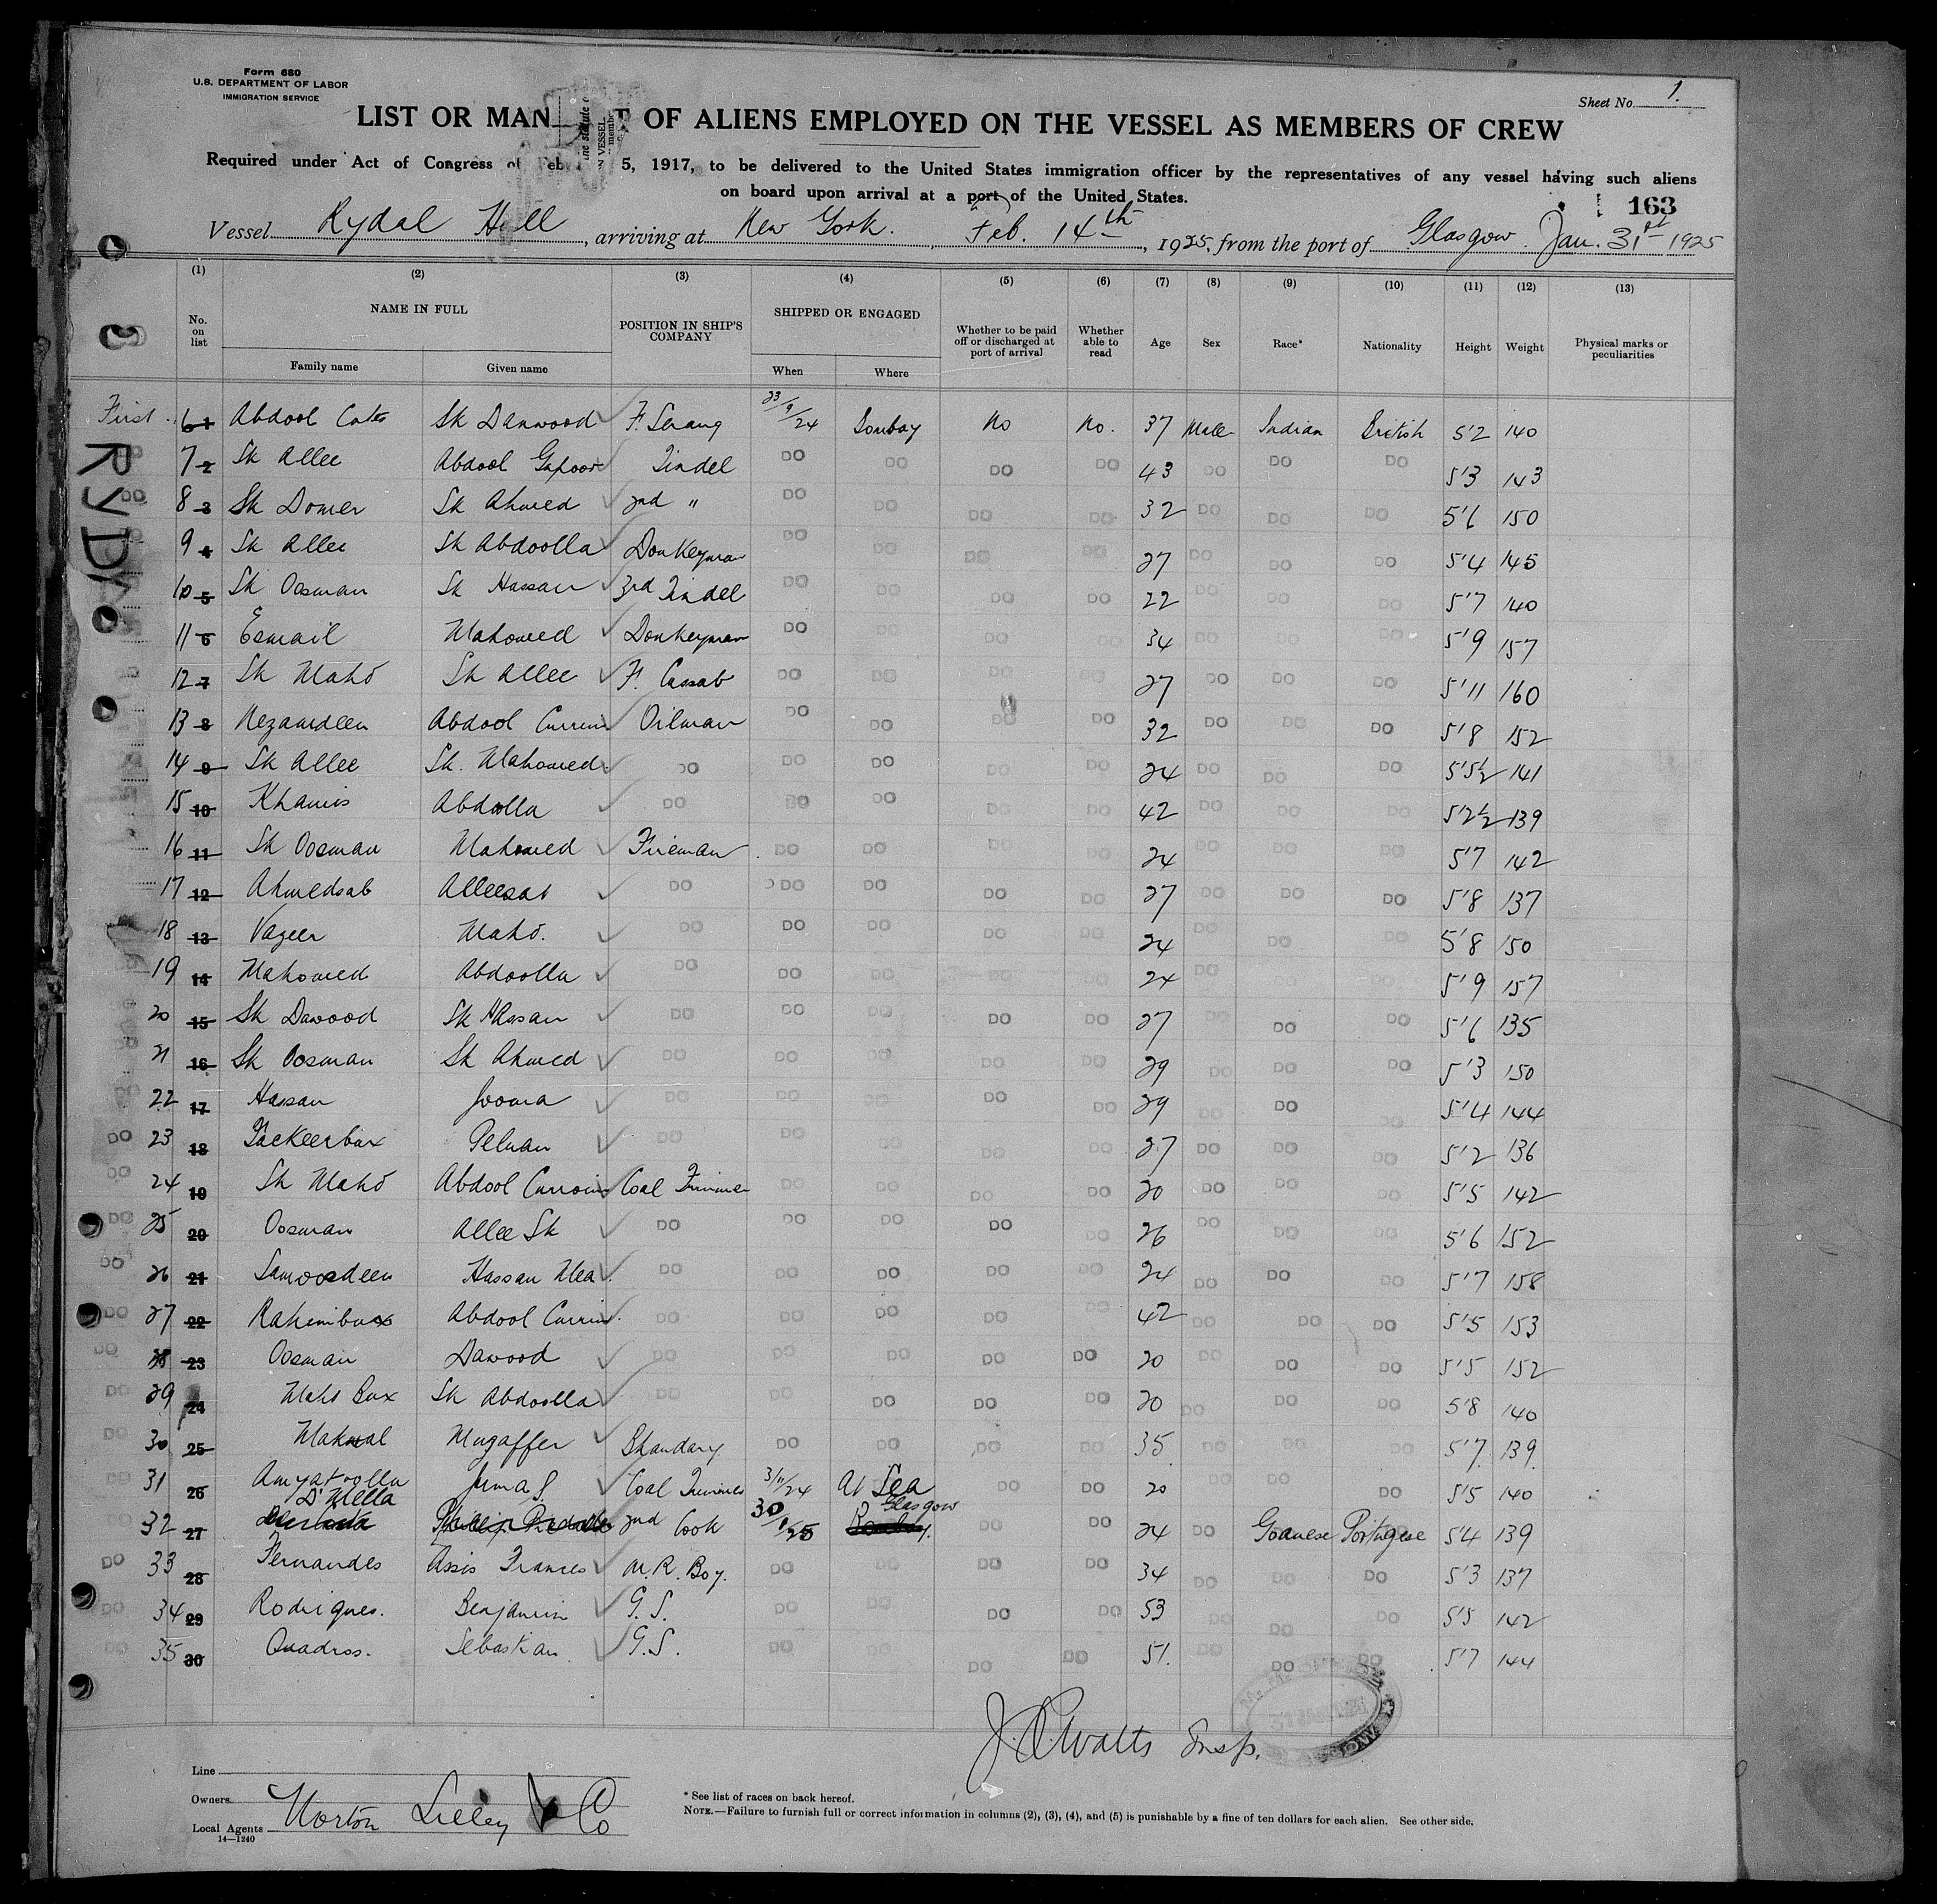 Form 680
U.S. DEPARTMENT OF LABOR
IMMIGRATION SERVICE
Sheet No. 1.
LIST OR MAN T OF ALIENS EMPLOYED ON THE VESSEL AS MEMBERS OF CREW
Required under Act of Congress of Feb 5, 1917, to be delivered to the United States immigration officer by the representatives of any vessel having such aliens
on board upon arrival at a port of the United States.
163
Vessel Rydal Hall, arriving at New York., Feb. 14th, 1925, from the port of Glasgow. Jan. 31st 1925
(1) (2) (3) (4) (5) (6) (7) (8) (9) (10) (11) (12) (13)
No. on list NAME IN FULL POSITION IN SHIP'S COMPANY SHIPPED OR ENGAGED Whether to be paid off or discharged at port of arrival Whether able to read Age Sex Race* Nationality Height Weight Physical marks or peculiarities
Family name Given name When Where
First 6 1 Abdool Sk Dawood F. Serang 23/9/24 Bombay No No. 37 Male Indian British 5'2 140
7 2 Sk Allee Abdool Gafoor Tindel DO DO DO DO 43 DO DO DO 5'3 143
DO 8 3 Sk Domer Sk Ahmed 2nd " DO DO DO DO 32 DO DO DO 5'6 150
9 4 Sk Allee Sk Abdoolla Donkeyman DO DO DO DO 27 DO DO DO 5'4 145
10 5 Sk Oosman Sk Hassan 3rd Tindel DO DO DO DO 22 DO DO DO 5'7 140
11 6 Esmail Mahomed Donkeyman DO DO DO DO 34 DO DO DO 5'9 157
12 7 Sk Mahd Sk Allee F. Cassab DO DO DO DO 27 DO DO DO 5'11 160
13 8 Nezamdeen Abdool Currim Oilman DO DO DO DO 32 DO DO DO 5'8 152
14 9 Sk Allee Sk. Mahomed DO DO DO DO DO 24 DO DO DO 5'5½ 141
15 10 Khamis Abdolla DO DO DO DO DO 42 DO DO DO 5'2½ 139
16 11 Sk Oosman Mahomed Fireman DO DO DO DO 24 DO DO DO 5'7 142
17 12 Ahmedsab Alleesab DO DO DO DO DO 27 DO DO DO 5'8 137
18 13 Vazeer Mahd. DO DO DO DO DO 24 DO DO DO 5'8 150
19 14 Mahomed Abdoolla DO DO DO DO DO 24 DO DO DO 5'9 157
20 15 Sk Dawood Sk Hassan DO DO DO DO DO 27 DO DO DO 5'6 135
21 16 Sk Oosman Sk Ahmed DO DO DO DO DO 29 DO DO DO 5'3 150
22 17 Hassan Jooma DO DO DO DO DO 29 DO DO DO 5'4 144
DO 23 18 Fackeerbux DO DO DO DO 27 DO DO DO 5'2 136
DO 24 19 Sk Mahd Abdool Coal Trimmer DO DO DO DO 20 DO DO DO 5'5 142
DO 25 20 Oosman Allee Sk DO DO DO DO DO 26 DO DO DO 5'6 152
DO 26 21 Samoodeen Hassan Mea DO DO DO DO DO 24 DO DO DO 5'7 158
DO 27 22 Rahimbux Abdool Currim DO DO DO DO DO 42 DO DO DO 5'5 153
DO 28 23 Oosman Dawood DO DO DO DO DO 20 DO DO DO 5'5 152
DO 29 24 Mahd Bux Sk Abdoolla DO DO DO DO DO 20 DO DO DO 5'8 140
DO 30 25 Mugaffer Bhandary DO DO DO DO 35 DO DO DO 5'7 139
DO 31 26 Amyatoolla Juma S. Coal Trimmer 3/11/24 At Sea DO DO 20 DO DO DO 5'5 140
32 27 D'Mella 2nd Cook 30/1/25 Bombay. Glasgow DO DO 24 DO Goanese Portugese 5'4 139
DO 33 28 Fernandes Assis Frances M.R. Boy. DO DO DO DO 34 DO DO DO 5'3 137
DO 34 29 Rodrigues. Benjamin G.S. DO DO DO DO 53 DO DO DO 5'5 142
DO 35 30 Quadros. Sebastian G.S. DO DO DO 51. DO DO DO 5'7 144
J. C. Watts Insp.
Line
Owners
Local Agents Norton Lilley & Co
14—1240
* See list of races on back hereof.
NOTE.—Failure to furnish full or correct information in columns (2), (3), (4), and (5) is punishable by a fine of ten dollars for each alien. See other side.